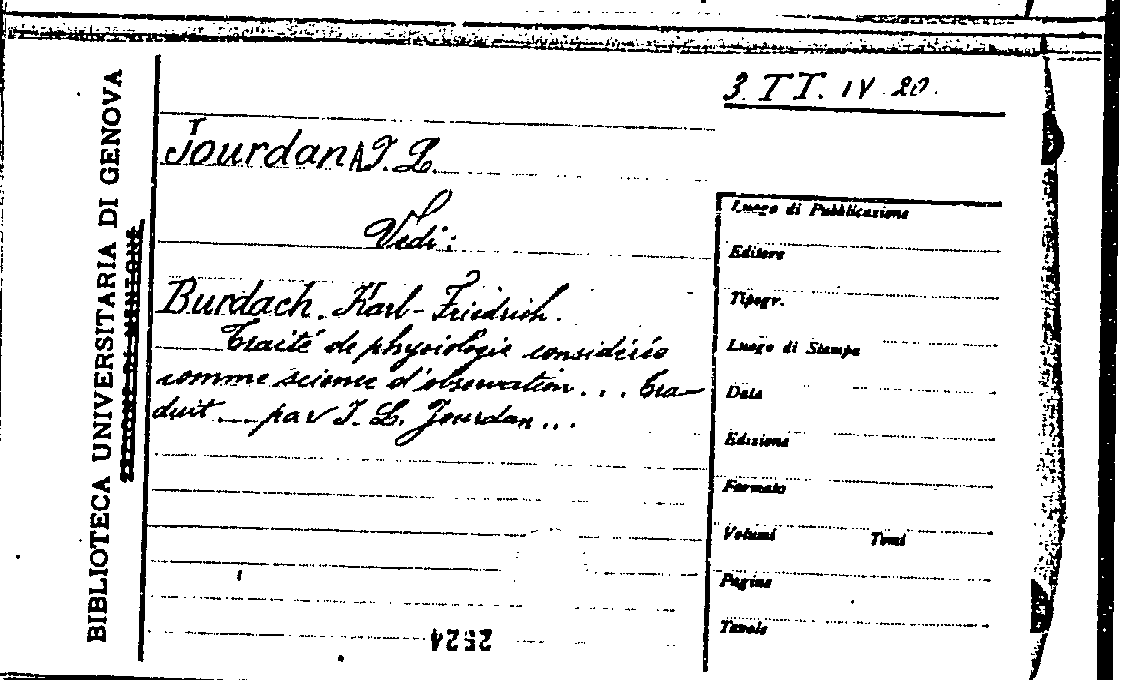 3. TT. IV 20.
Jourdan A J. L.
Vedi:
Burdach. Karl-Friedrich.
Traité de physiologie considérée
comme science d'observation... Tra-
duit __ par J. L. Jourdan...
BIBLIOTECA UNIVERSITARIA DI GENOVA
Luogo di Pubblicazione
Editore
Tipogr.
Luogo di Stampa
Data
Edizione
Formato
Volumi Tomi
Pagine
Tavole
2524